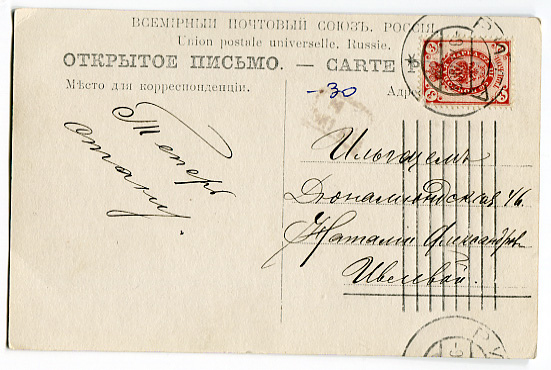 ВСЕМІРНЫЙ ПОЧТОВЫЙ СОЮЗЪ. РОССІЯ.
Union postale universelle. Russie.
ОТКРЫТОЕ ПИСЬМО. — CARTE P
Мѣсто для корреспонденціи.
Адре
-30
Теперь
3
3
Ильгецемъ
46.
Наталіи Александр
Ивелевой.